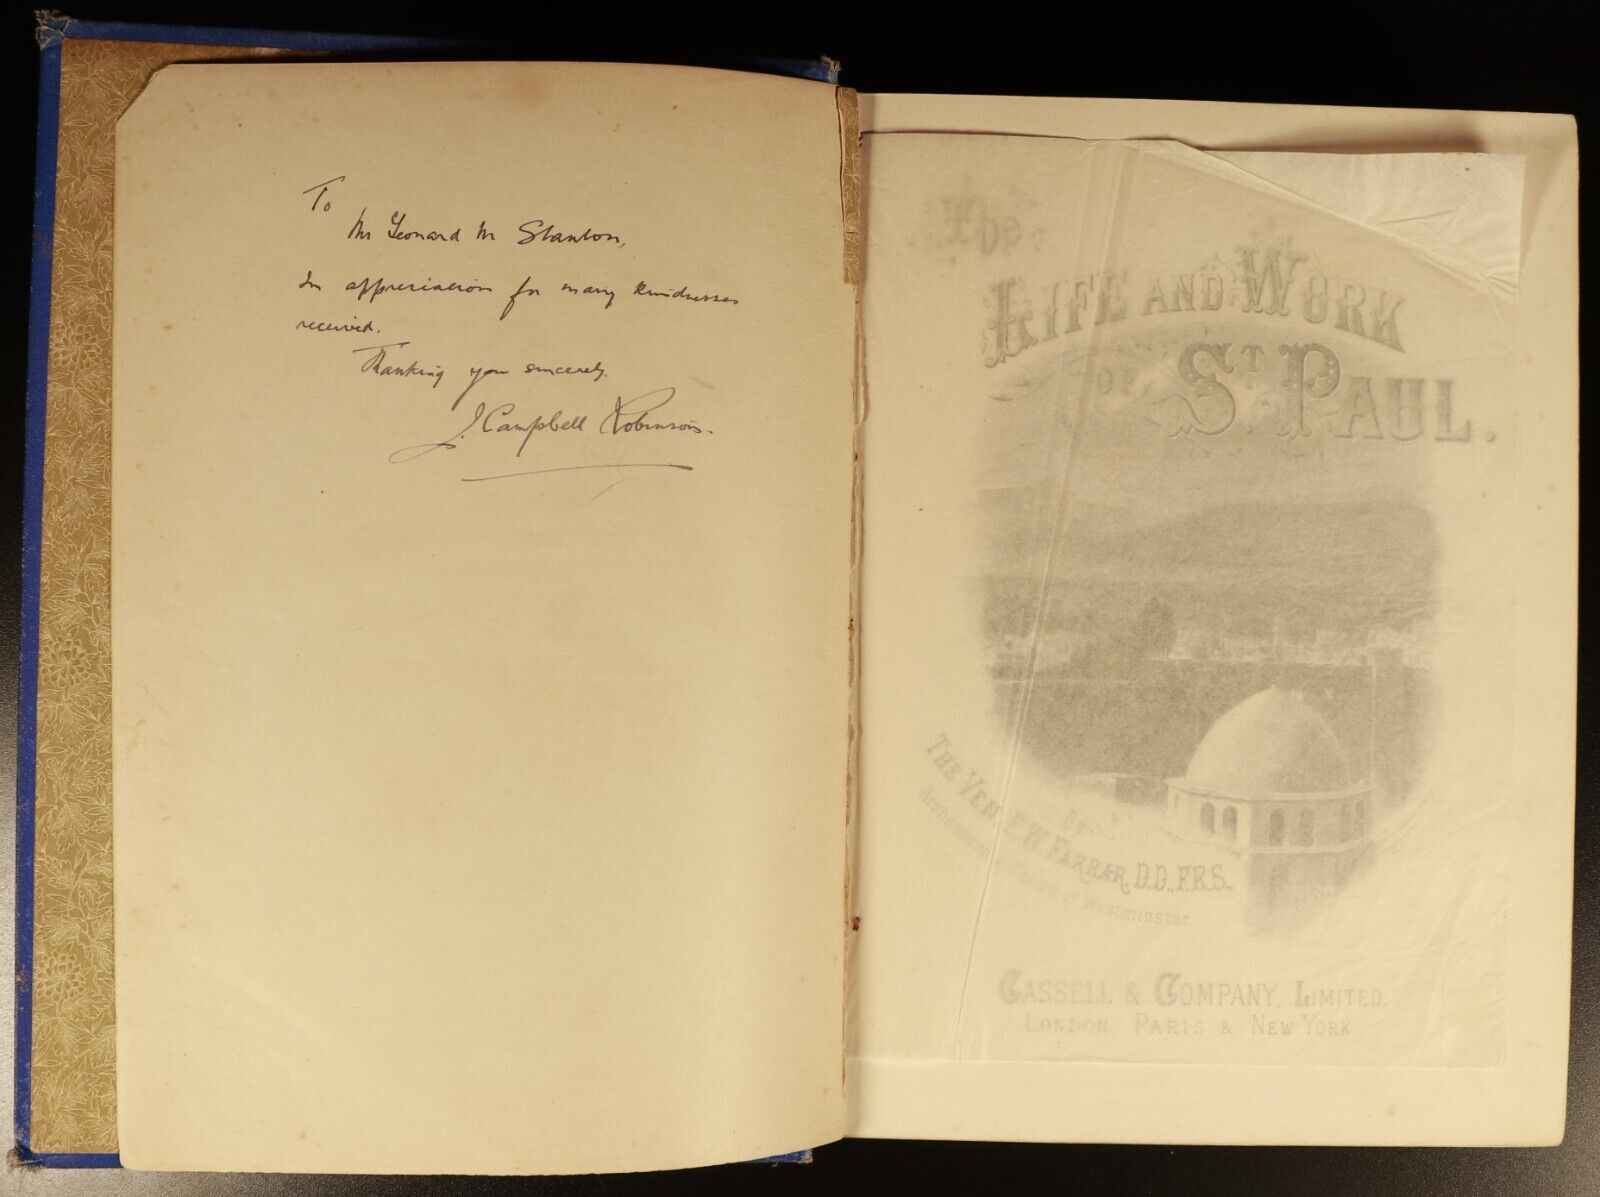 To
Mr Leonard M Stanton,
In appreciation for many kindnesses
received.
Thanking you sincerely.
J. Campbell Robinson.
The
LIFE AND WORK
OF ST PAUL.
BY
THE VEN. F. W. FARRAR, D.D., F.R.S.,
Archdeacon & Canon of Westminster.
CASSELL & COMPANY, LIMITED.
LONDON, PARIS & NEW YORK